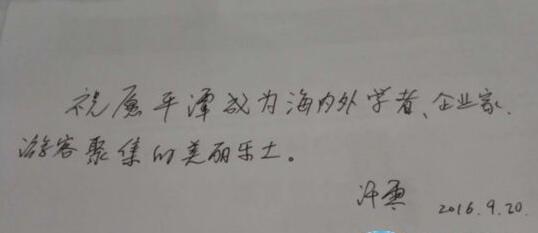 祝愿平潭成为海内外学者、企业家、
游客聚集的美丽乐土。
2016.9.20.